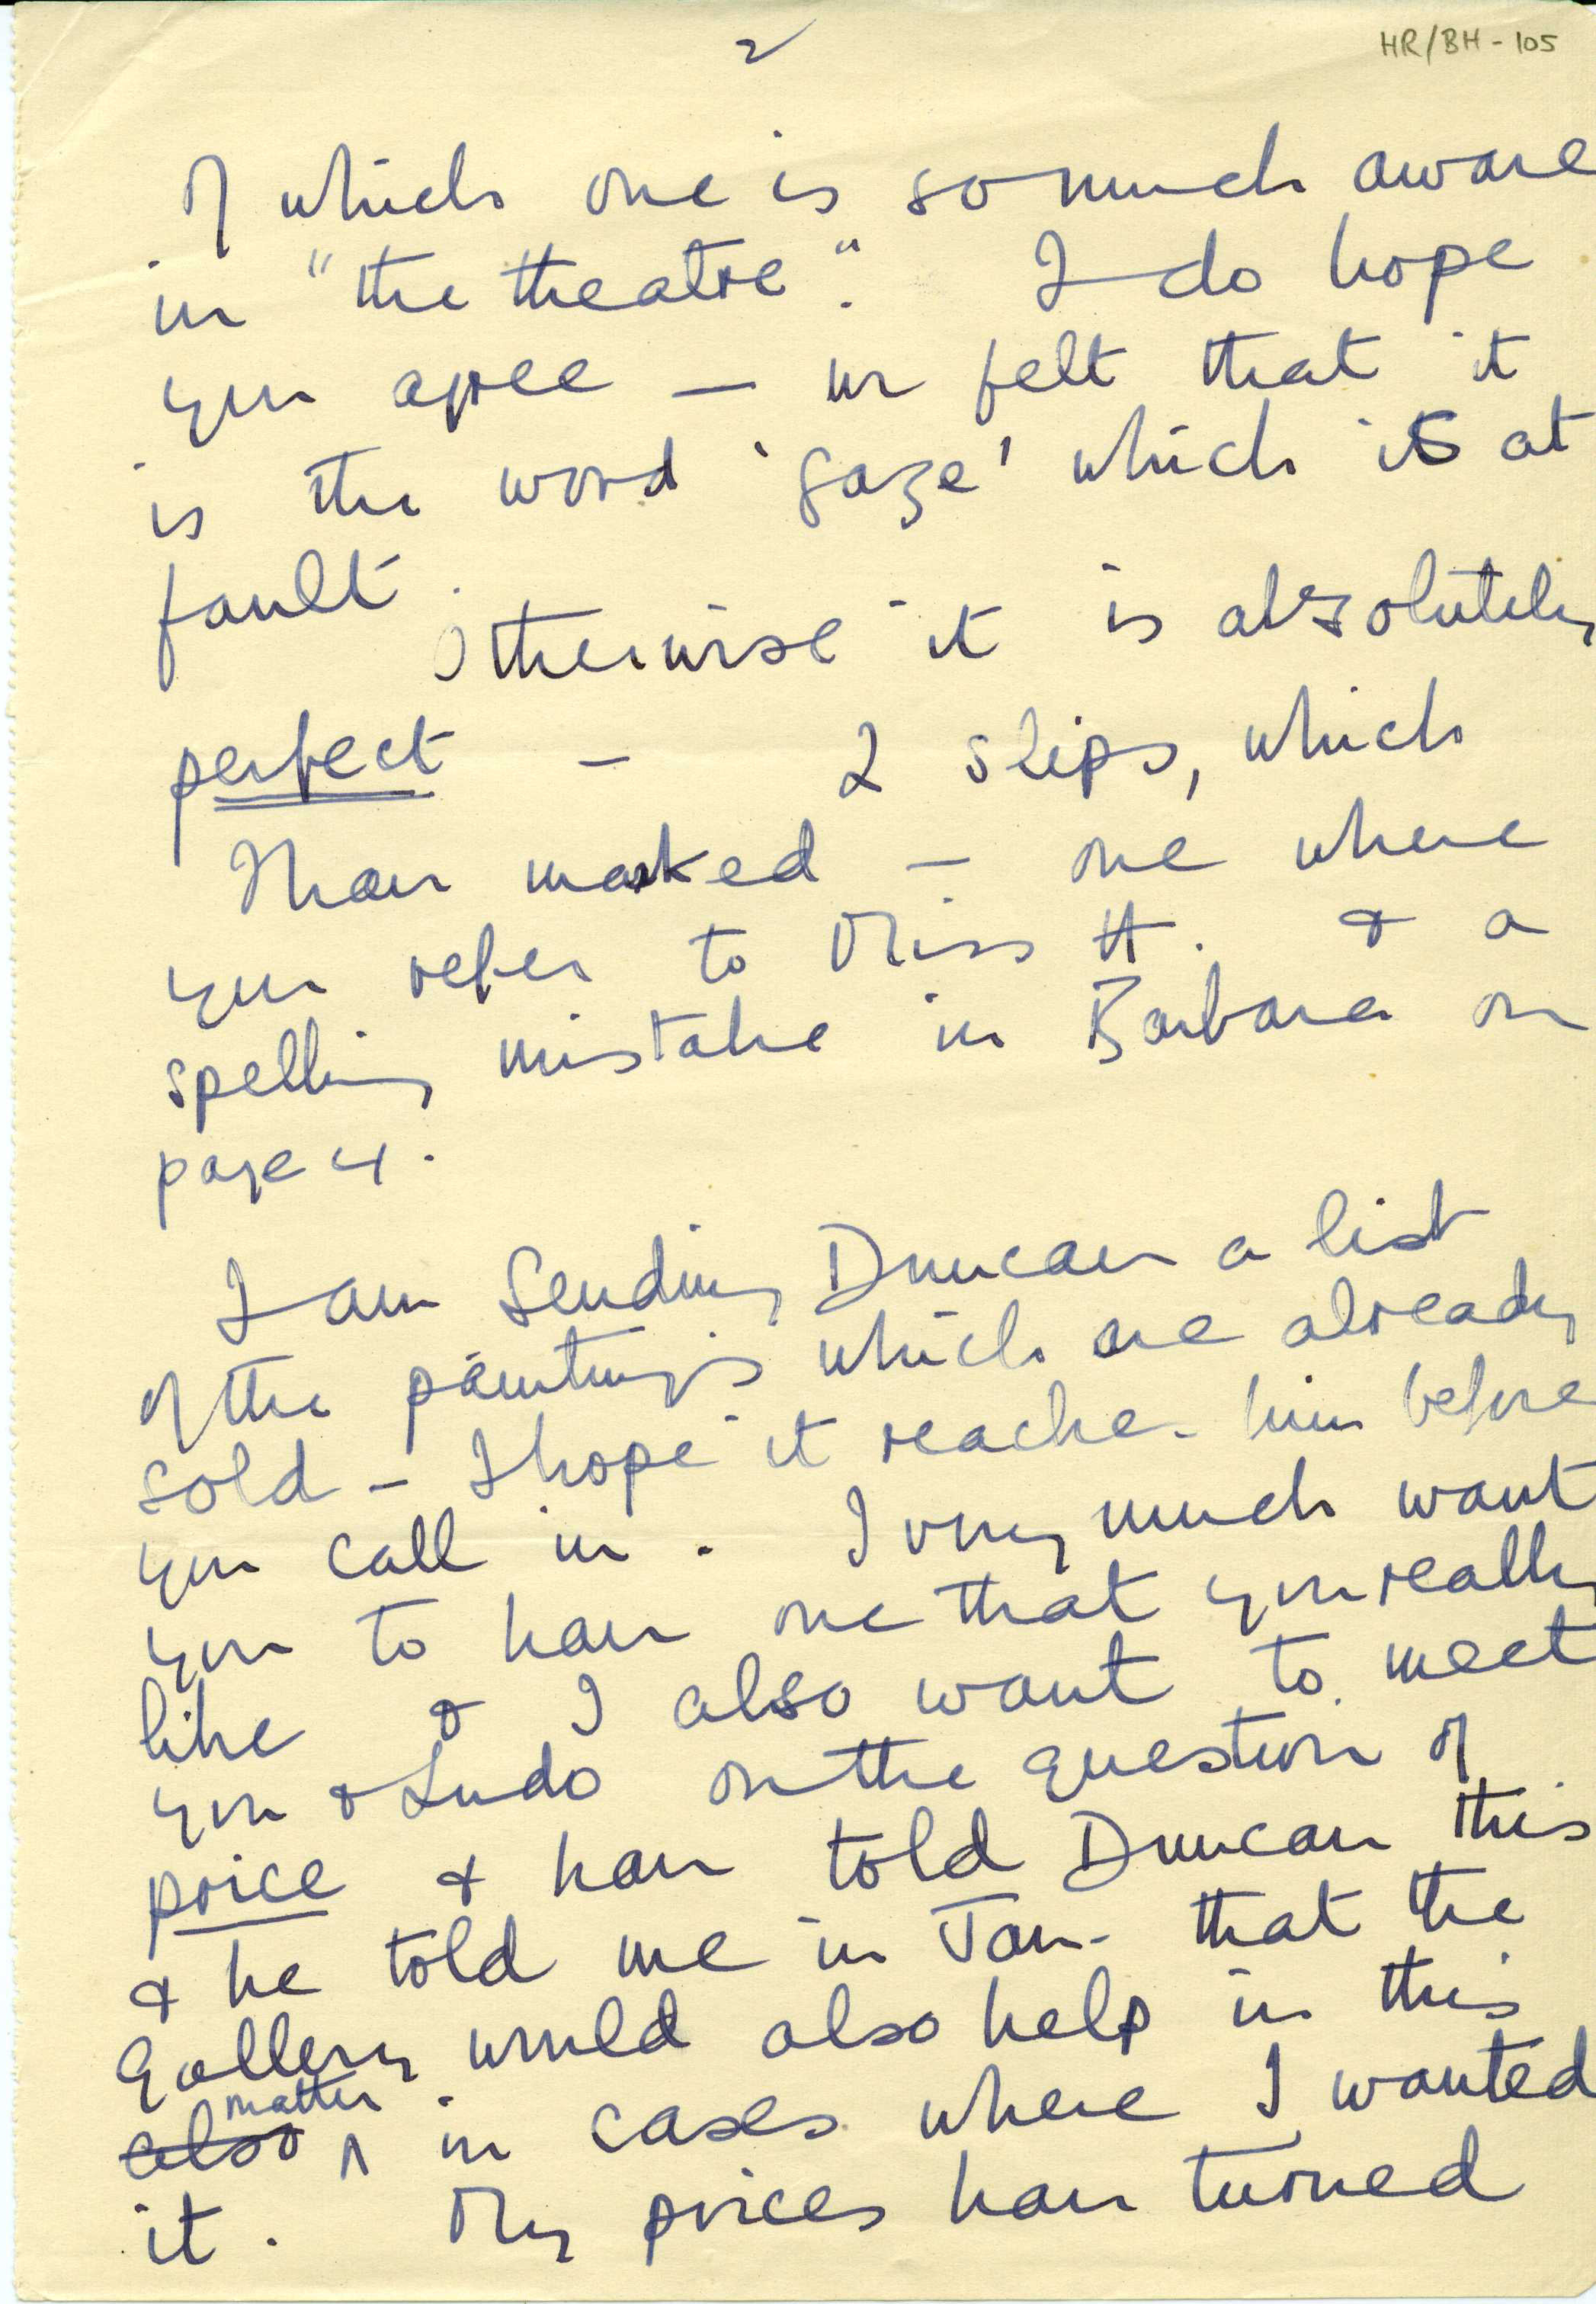 2
HR/BH - 105
of which one is so much aware
in "the theatre". I do hope
you agree — we felt that it
is the word 'gaze' which is at
fault.
Otherwise it is absolutely
perfect — 2 slips, which
I have marked — one where
you refer to Miss H. & a
spelling mistake in Barbara on
page 4.
I am sending Duncan a list
of the paintings which are already
sold — I hope it reaches him before
you call in. I very much want
you to have one that you really
like & I also want to meet
you & Ludo on the question of
price & have told Duncan this
& he told me in Jan. that the
gallery would also help in this
also matter in cases where I wanted
it. My prices have turned